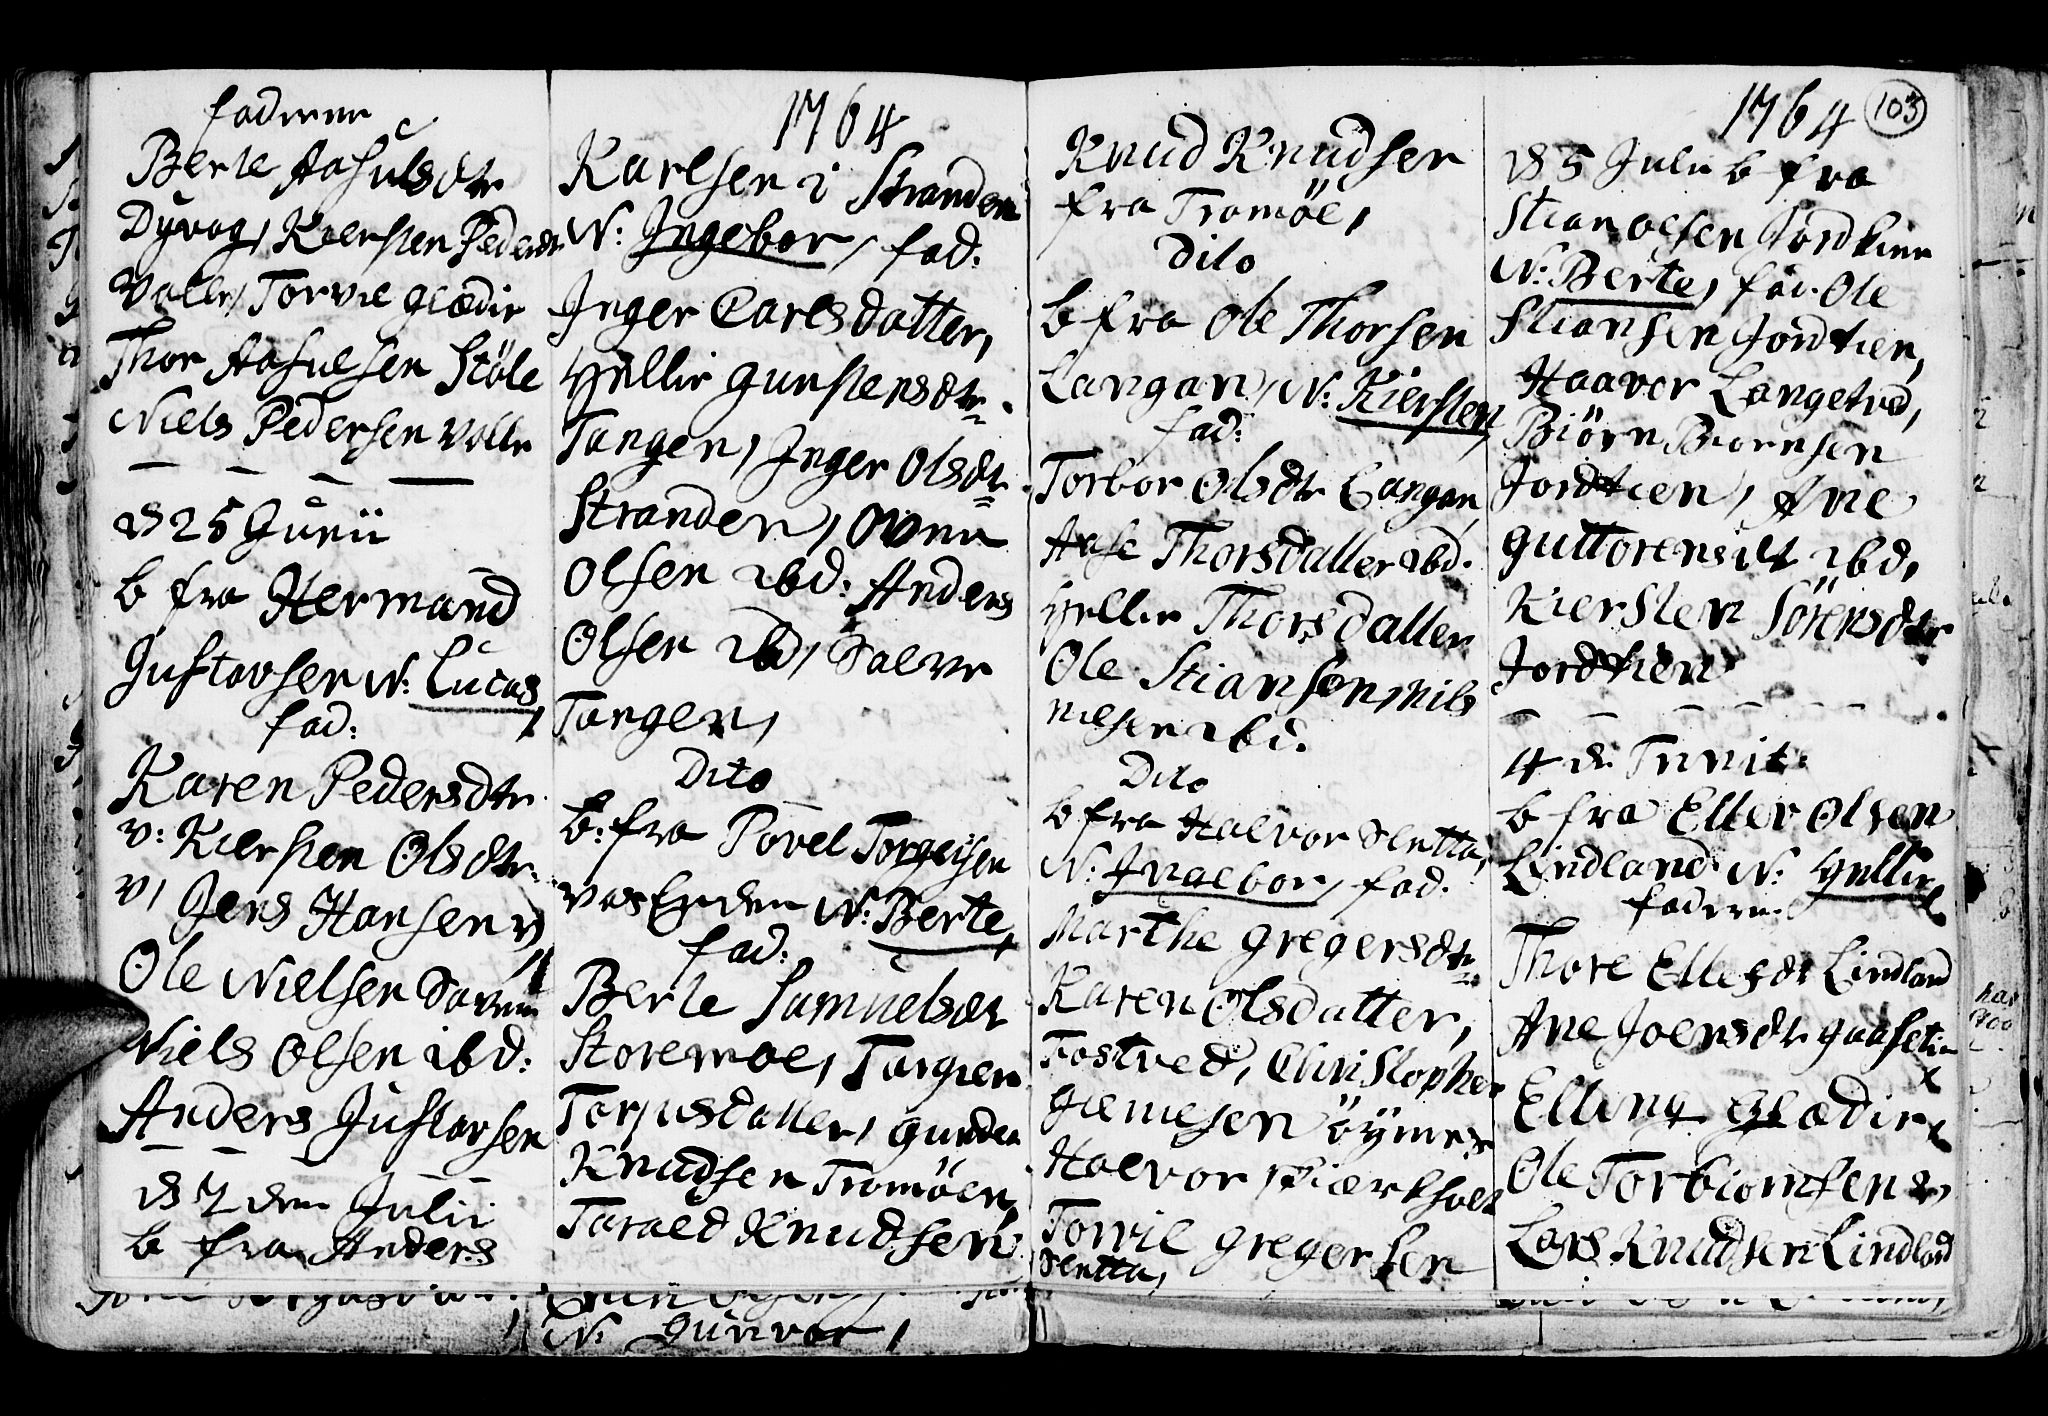 faderne
Berte Aasulsdtr
Dyvog, Kiersten Pedersdtr
Valle, Torvil Glædie
Thor Aasulsen Støle
Niels Pedersen Valle
d 25 Junii
b fra Hermand
Justavsen N: Lucas,
fad:
Karen Pedersdtr
v: Kiersten Olsdtr
v, Jens Hansen v
Ole Nielsen
Niels Olsen ibd:
Anders Justavsen
d 2 den Julii
b fra Anders
1764
Karlsen i Stranden
N: Ingebor, fad:
Inger Carlsdatter,
Hellie Gunstensdtr
Tangen, Inger Olsdtr
Stranden, Oven
Olsen ibd: Anders
Olsen ibd, Salve
Tangen,
Dito
b: fra Povel Torgeisen
Vas Enden N: Berte,
fad:
Berte Samuelsdt
Storemoe, Torgier
Torjusdatter, Gunder
Knudsen Tromöen,
Tarald Knudsen
Knud Knudsen
fra Tromöe,
Dito
b fra Ole Thorsen
Langan, N: Kiersten,
fad:
Torbor Olsdtr Langan,
Aase Thorsdatter ibd.
Hellie Thorsdatter
Ole Stiansen, Nils
Nielsen ibd.
Dito
b fra Halvor Sletta,
N: Ingebor, fad:
Marthe Gregersdtr
Karen Olsdatter,
Fostved, Christopher
Öÿmer
Halvor
Torvil Gregersen
Sletta,
1764
103
d 5 Julii b fra
Stian Olsen Jordkien
N: Berte, fad. Ole
Stiansen Jordtien,
Haavor Langetved,
Biörn Biörnsen
Jordtien, Ane
Guttorensdt ibd,
Kiersten Sörensdtr
Jordtien
4 de Trinit:
b fra Ellev Olsen
Lindland N: Hellie
faderne
Thore Ellefsdt Lindland
Ane Joensdtr
Elling Glædie
Ole Torbiornsen
Lars Knudsen Lindland
N: Gunvor,